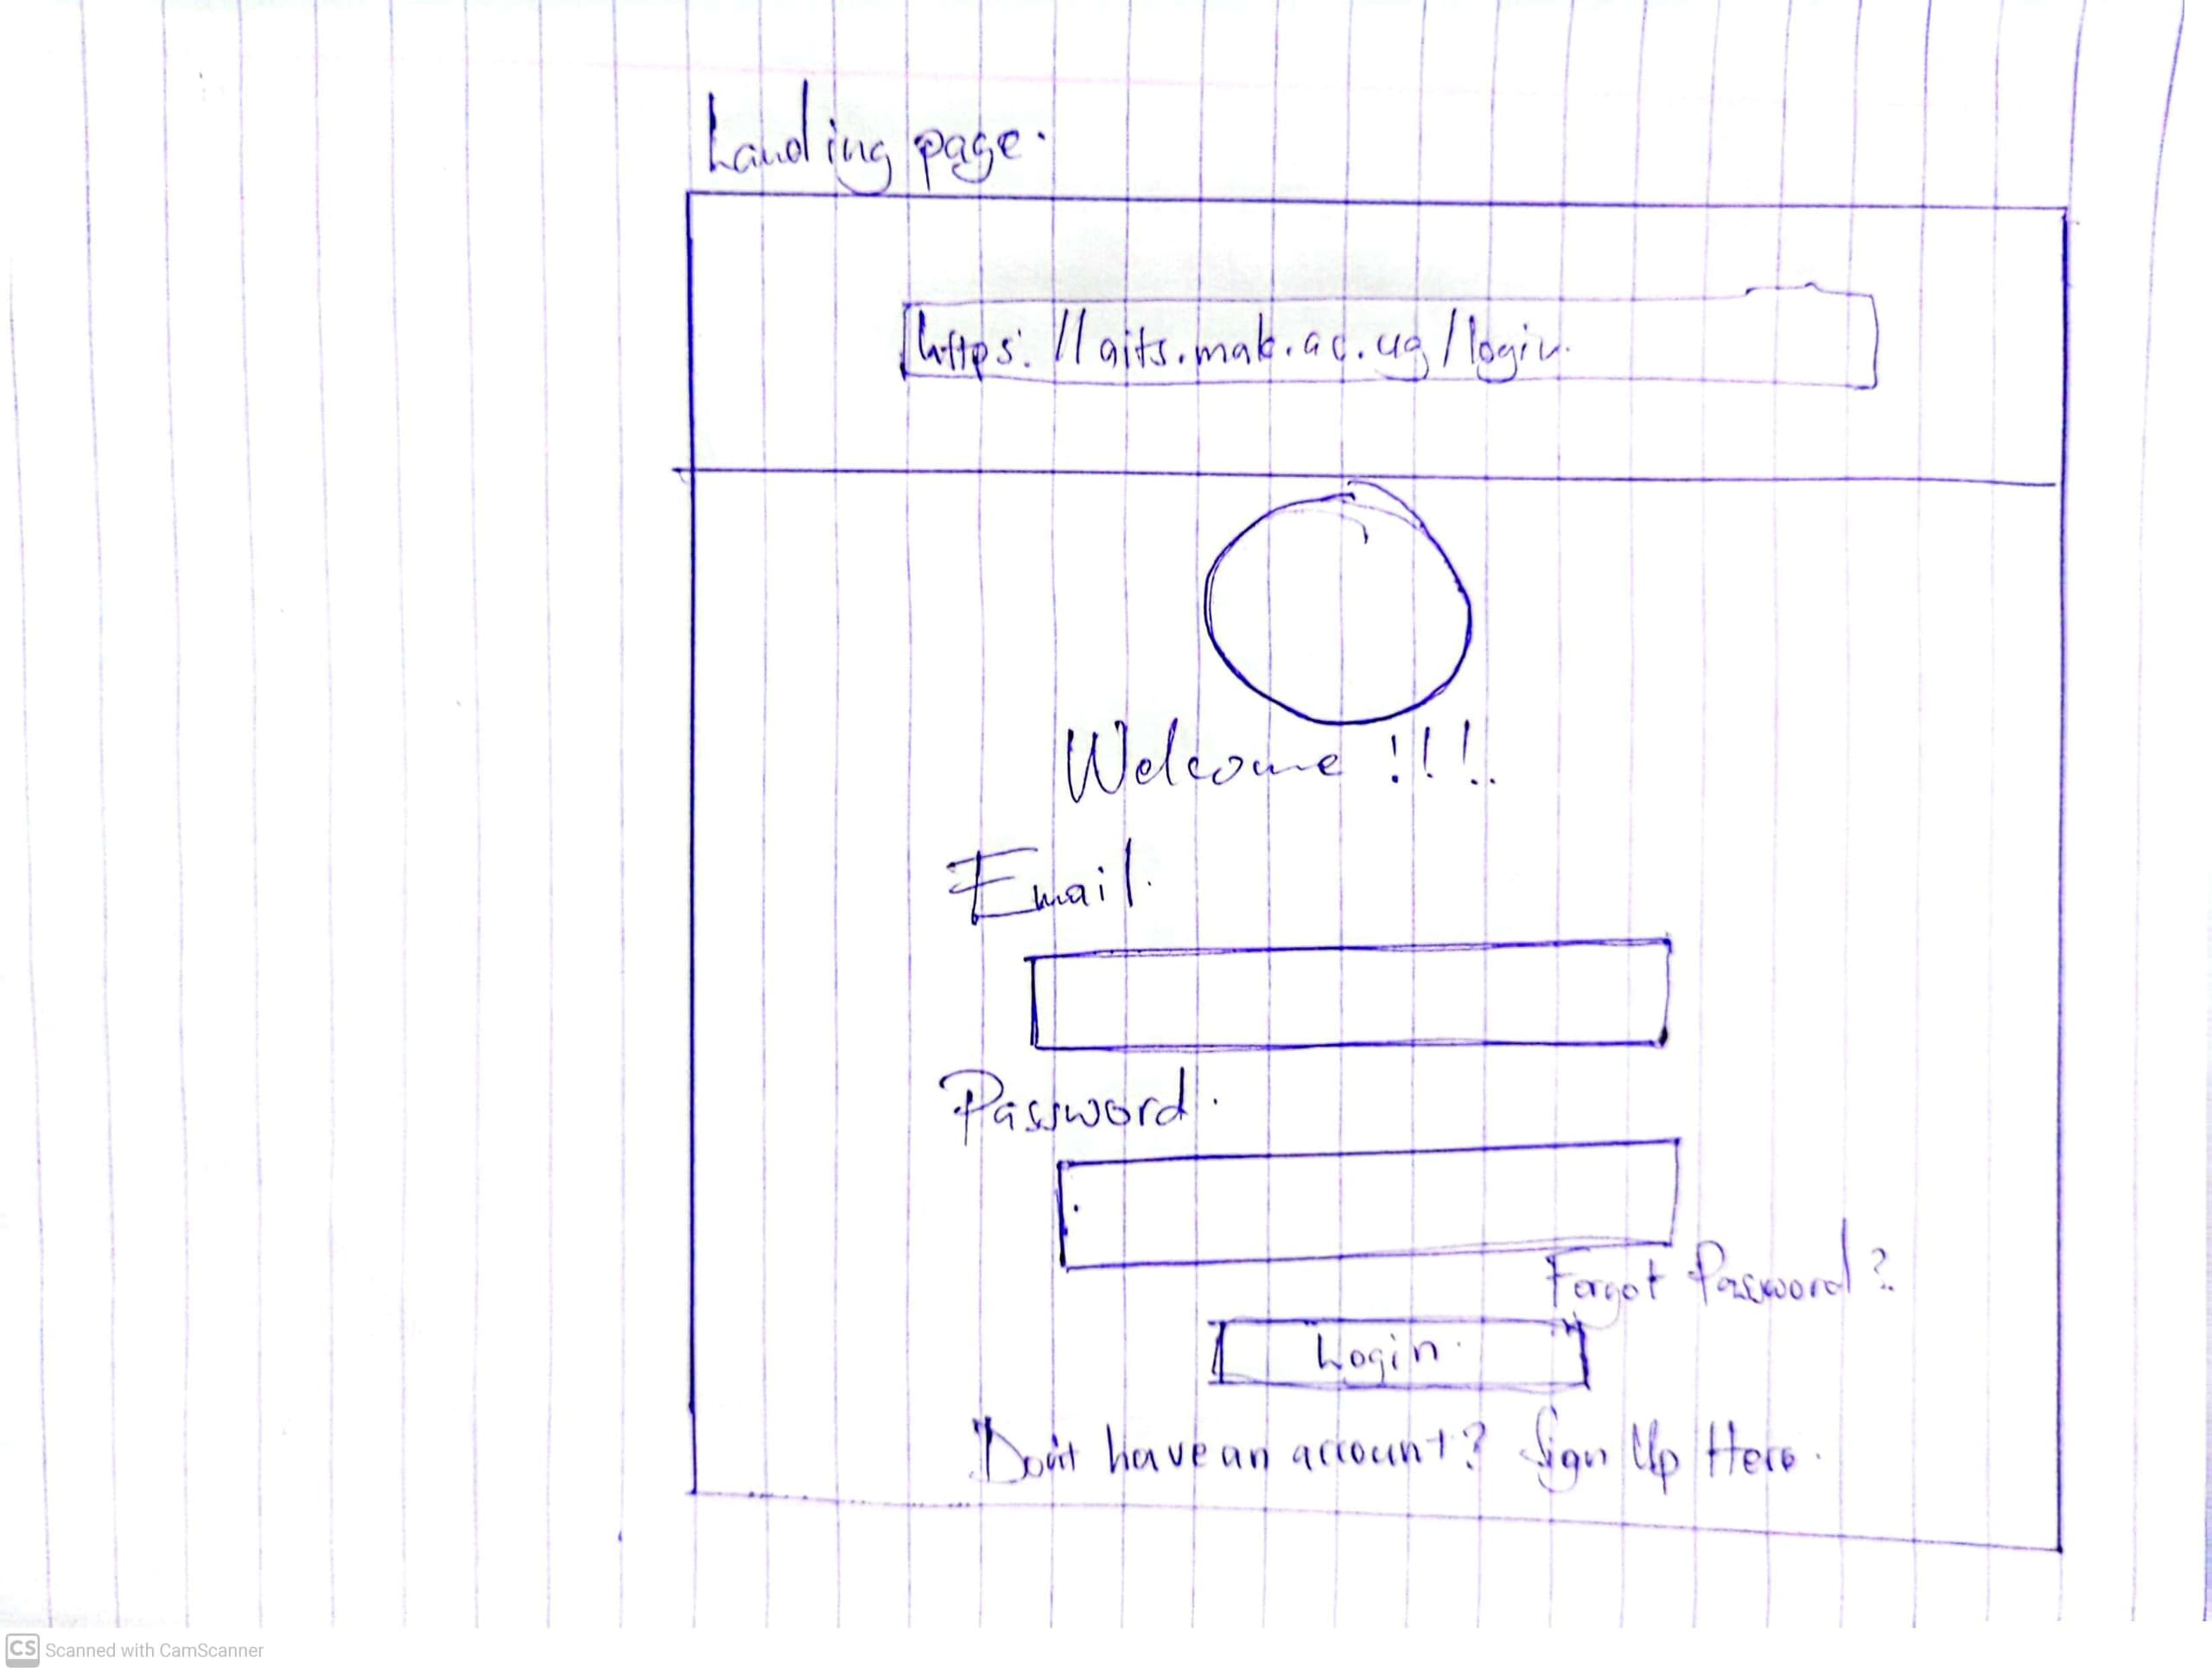 Landing page.
https://aits.mak.ac.ug/login.
Welcome !!!..
Email.
Password.
Forgot Password?
Login.
Don't have an account? Sign Up Here.
CS Scanned with CamScanner